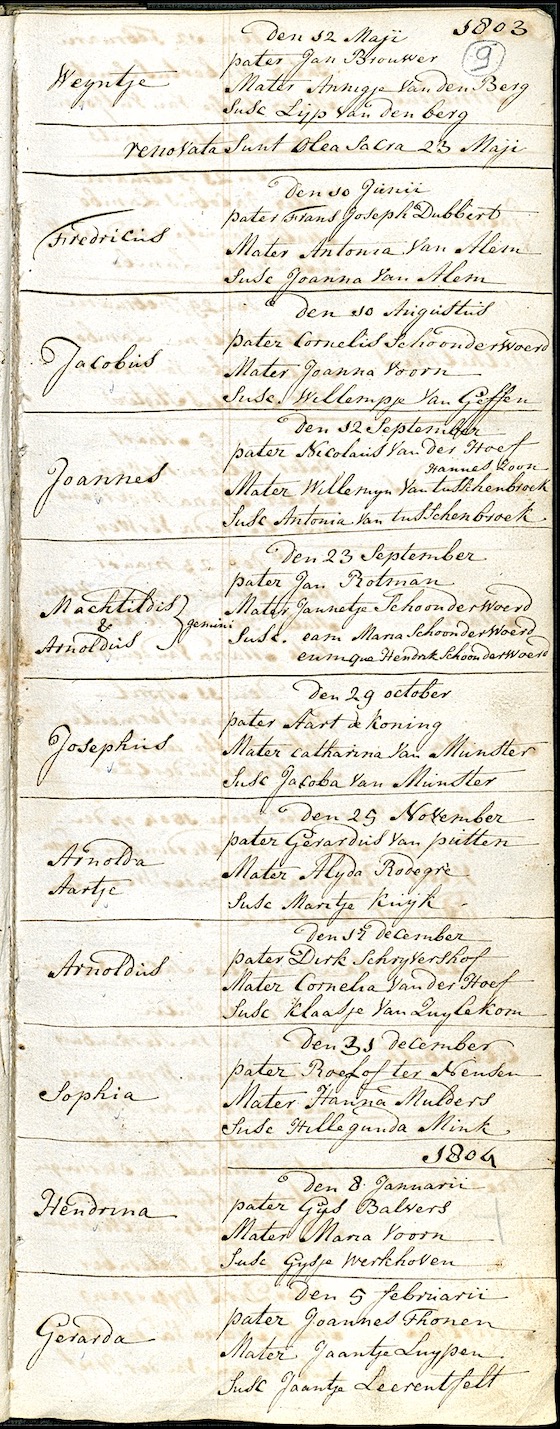 1803
9
den 12 Maji
pater Jan Brouwer
Weyntje
Mater Annigje Van den Berg
Susc Lijp Van den berg
renovata Sunt Olea Sacra 23 Maji
den 10 Junii
pater Frans Joseph Dubbert
Fredricus
Mater Antonia Van Alem
Susc Joanna Van Alem
den 10 Augustus
pater Cornelis Schoonderwoerd
Jacobus
Mater Joanna Voorn
Susc. Willempje Van Geffen
den 12 September
pater Nicolaus Van der Hoef
Hannes Zoon
Joannes
Mater Willemyn Van tusschenbroek
Susc Antonia Van tusschenbroek
den 23 September
pater Jan Rotman
Machtildis
Mater Jannetje Schoonderwoerd
& gemini
Arnoldus
Susc. eam Maria Schoonderwoerd
eumque Hendrik Schoonderwoerd
den 29 october
pater Aart de koning
Josephus
Mater catharina Van Munster
Susc Jacoba Van Munster
den 25 November
pater Gerardus Van putten
Arnolda
Mater Alyda
Aartje
Susc Maritje Kuijk
den 12 december
pater Dirk Schryvershof
Arnoldus
Mater Cornelia Van der Hoef
Susc Klaasje Van Zuylekom
den 31 december
pater Roelof ter Nensen
Sophia
Mater Hanna Mulders
Susc Hillegunda Mink
1804
den 8 Januarii
pater Gys Balvers
Hendrina
Mater Maria Voorn
Susc Gysje Werkhoven
den 5 februarii
pater Joannes Thonen
Gerarda
Mater Jaantje Luypen
Susc Jaantje Leerentfelt